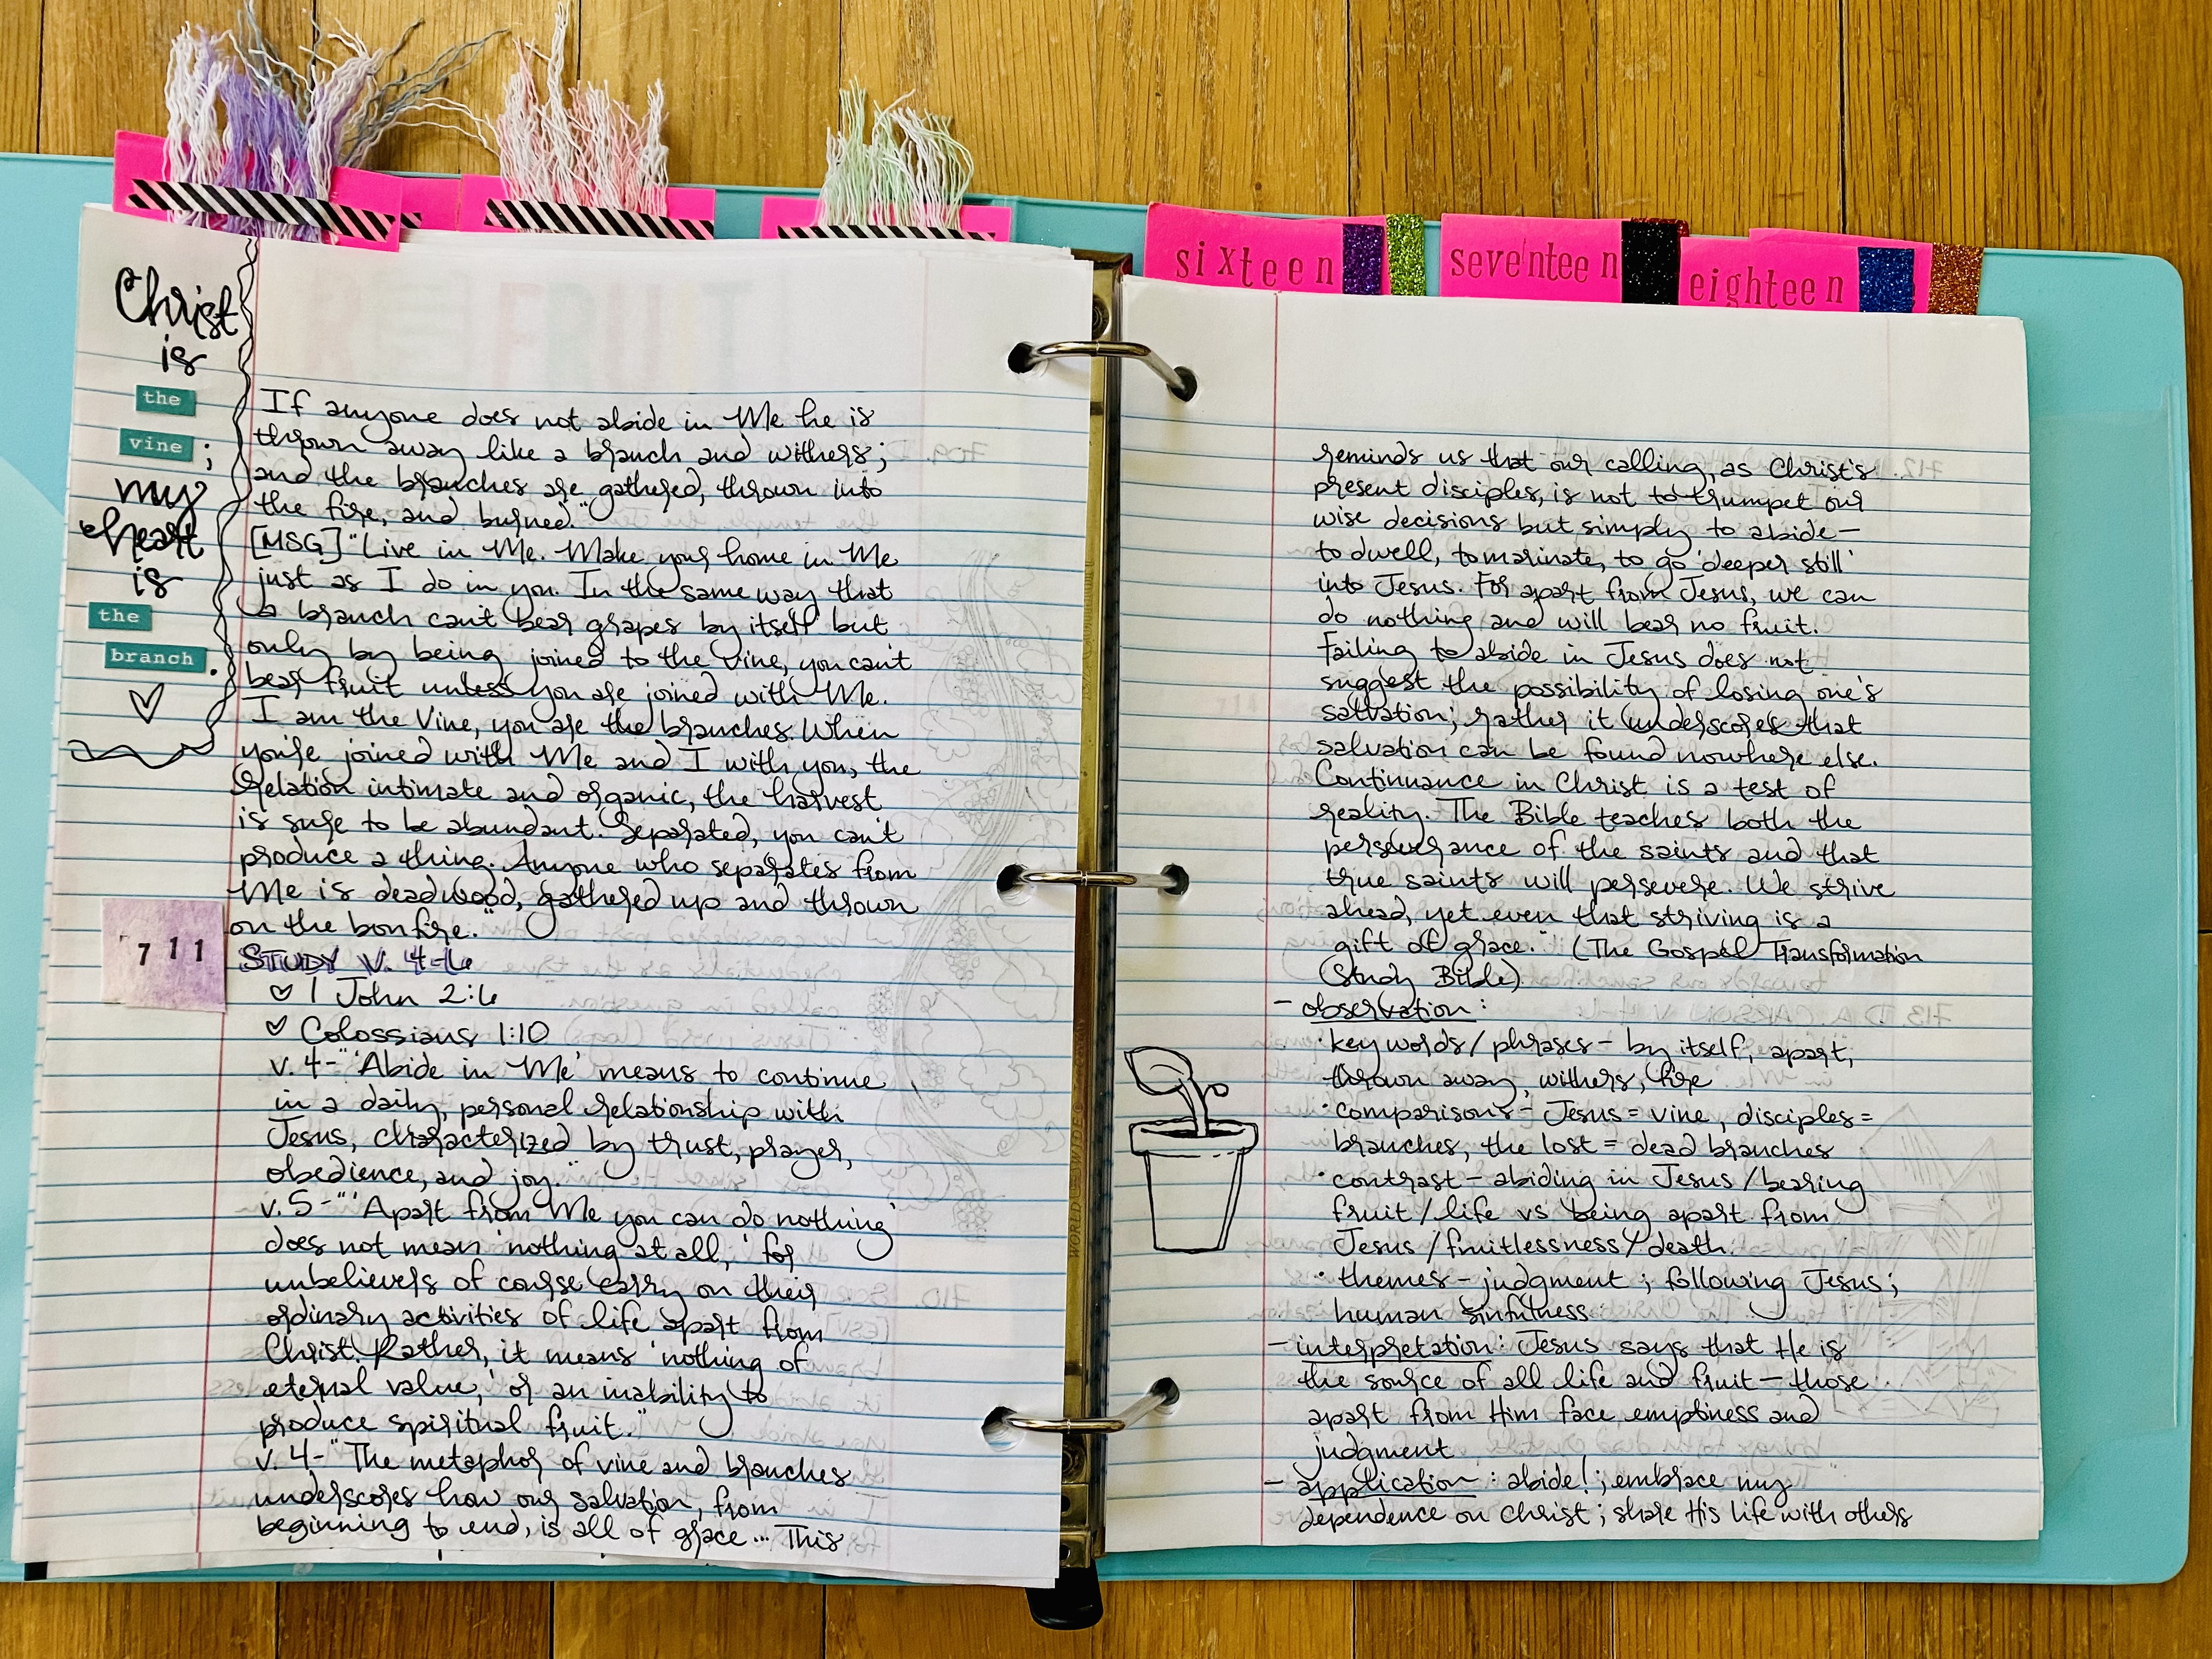 sixteen
seventeen
eighteen
Christ
is
the
vine;
my
heart
is
the
branch.
If anyone does not abide in Me he is
thrown away like a branch and withers;
and the branches are gathered, thrown into
the fire, and burned."
[MSG] "Live in Me. Make your home in Me
just as I do in you. In the same way that
a branch can't bear grapes by itself but
only by being joined to the vine, you can't
bear fruit unless you are joined with Me.
I am the Vine, you are the branches. When
you're joined with Me and I with you, the
relation intimate and organic, the harvest
is sure to be abundant. Separated, you can't
produce a thing. Anyone who separates from
Me is deadwood, gathered up and thrown
on the bonfire."
711
STUDY V. 4-6
1 John 2:6
Colossians 1:10
v. 4-"'Abide in Me' means to continue
in a daily, personal relationship with
Jesus, characterized by trust, prayer,
obedience, and joy."
v. 5-"'Apart from Me you can do nothing'
does not mean 'nothing at all,' for
unbelievers of course carry on their
ordinary activities of life apart from
Christ. Rather, it means 'nothing of
eternal value,' or an inability to
produce spiritual fruit."
v. 4-"The metaphor of vine and branches
underscores how our salvation, from
beginning to end, is all of grace... This
reminds us that our calling, as Christ's
present disciples, is not to trumpet our
wise decisions but simply to abide—
to dwell, to marinate, to go 'deeper still'
into Jesus. For apart from Jesus, we can
do nothing and will bear no fruit.
Failing to abide in Jesus does not
suggest the possibility of losing one's
salvation; rather it underscores that
salvation can be found nowhere else.
Continuance in Christ is a test of
reality. The Bible teaches both the
perseverance of the saints and that
true saints will persevere. We strive
ahead, yet even that striving is a
gift of grace." (The Gospel Transformation
Study Bible)
- observation:
· key words/phrases - by itself, apart,
thrown away, withers, fire
· comparisons - Jesus = vine, disciples =
branches, the lost = dead branches
· contrast - abiding in Jesus/bearing
fruit/life vs being apart from
Jesus/fruitlessness/death
· themes - judgment; following Jesus;
human sinfulness
- interpretation: Jesus says that He is
the source of all life and fruit — those
apart from Him face emptiness and
judgment
- application: abide!; embrace my
dependence on Christ; share His life with others